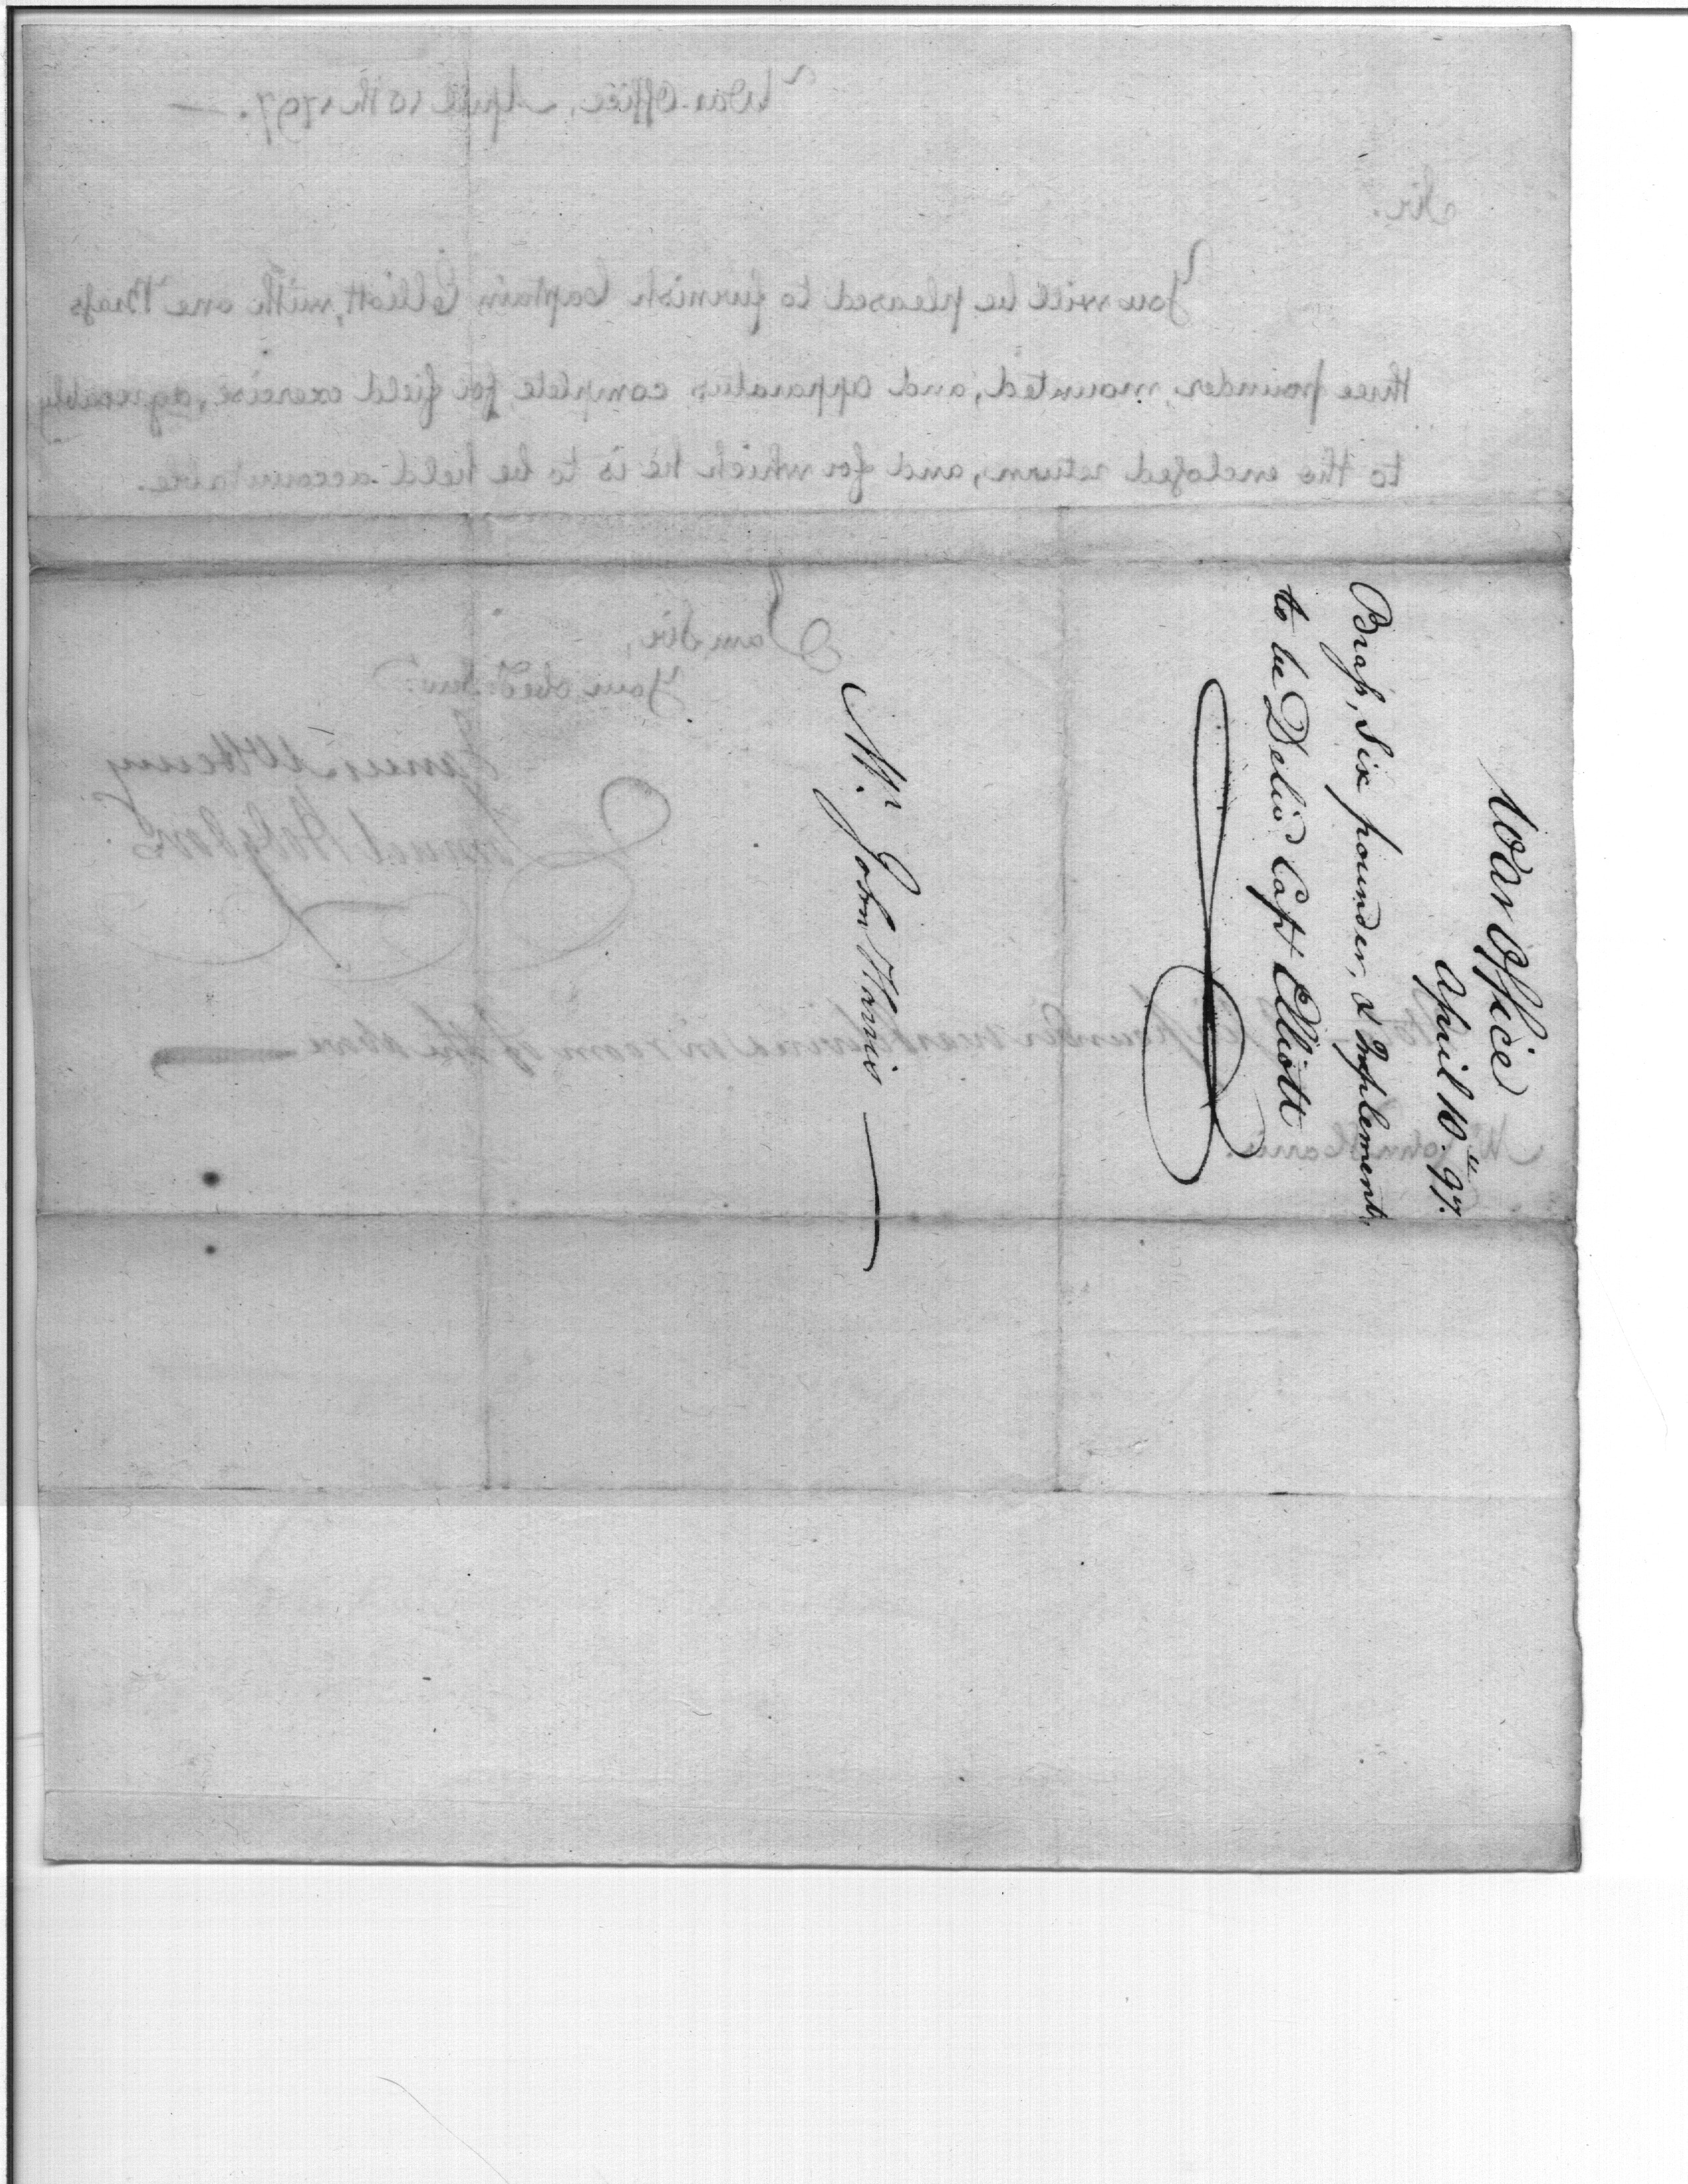 War Office
April 10th 97.
Brass, Six pounder, & Implements,
to be Deliv'd Capt Elliott
Mr. John Harris
War Office, April 10th 1797.
Sir.
You will be pleased to furnish Captain Elliott, with one Brass
three pounder, mounted, and apparatus complete for field exercise, agreeably
to the enclosed return, and for which he is to be held accountable.
I am Sir,
Your obedt. servt.
James McHenry
Samuel Hodgdon
pounder in room of the above
Mr. John Harris